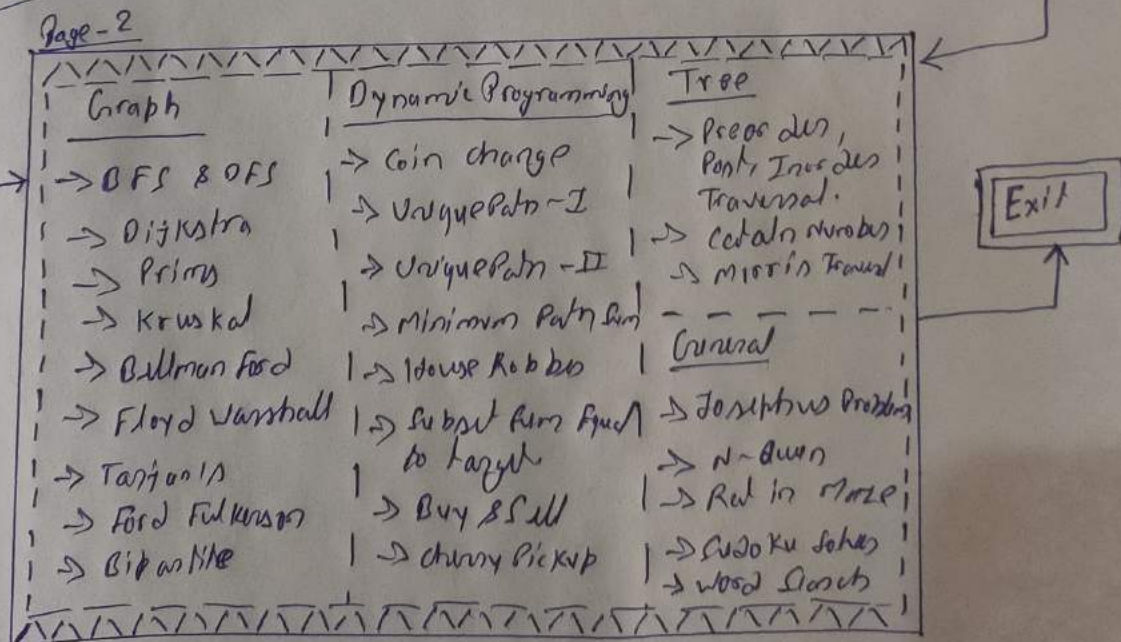 Page-2
Graph
-> BFS & DFS
-> Dijkstra
-> Prims
-> Kruskal
-> Bellman Ford
-> Floyd Warshall
-> Tarjan's
-> Ford Fulkerson
-> Bipartite
Dynamic Programming
-> Coin change
-> Unique Path-I
-> Unique Path-II
-> Minimum Path Sum
-> House Robber
-> Subset Sum Equal
to target
-> Buy & Sell
-> Cherry Pickup
Tree
-> Preorder,
Post, Inorder
Traversal.
-> Cataln Number
-> Morris Traversal
General
-> Josephus Problem
-> N-Queen
-> Rat in Maze
-> Sudoku Solver
-> Word Search
Exit